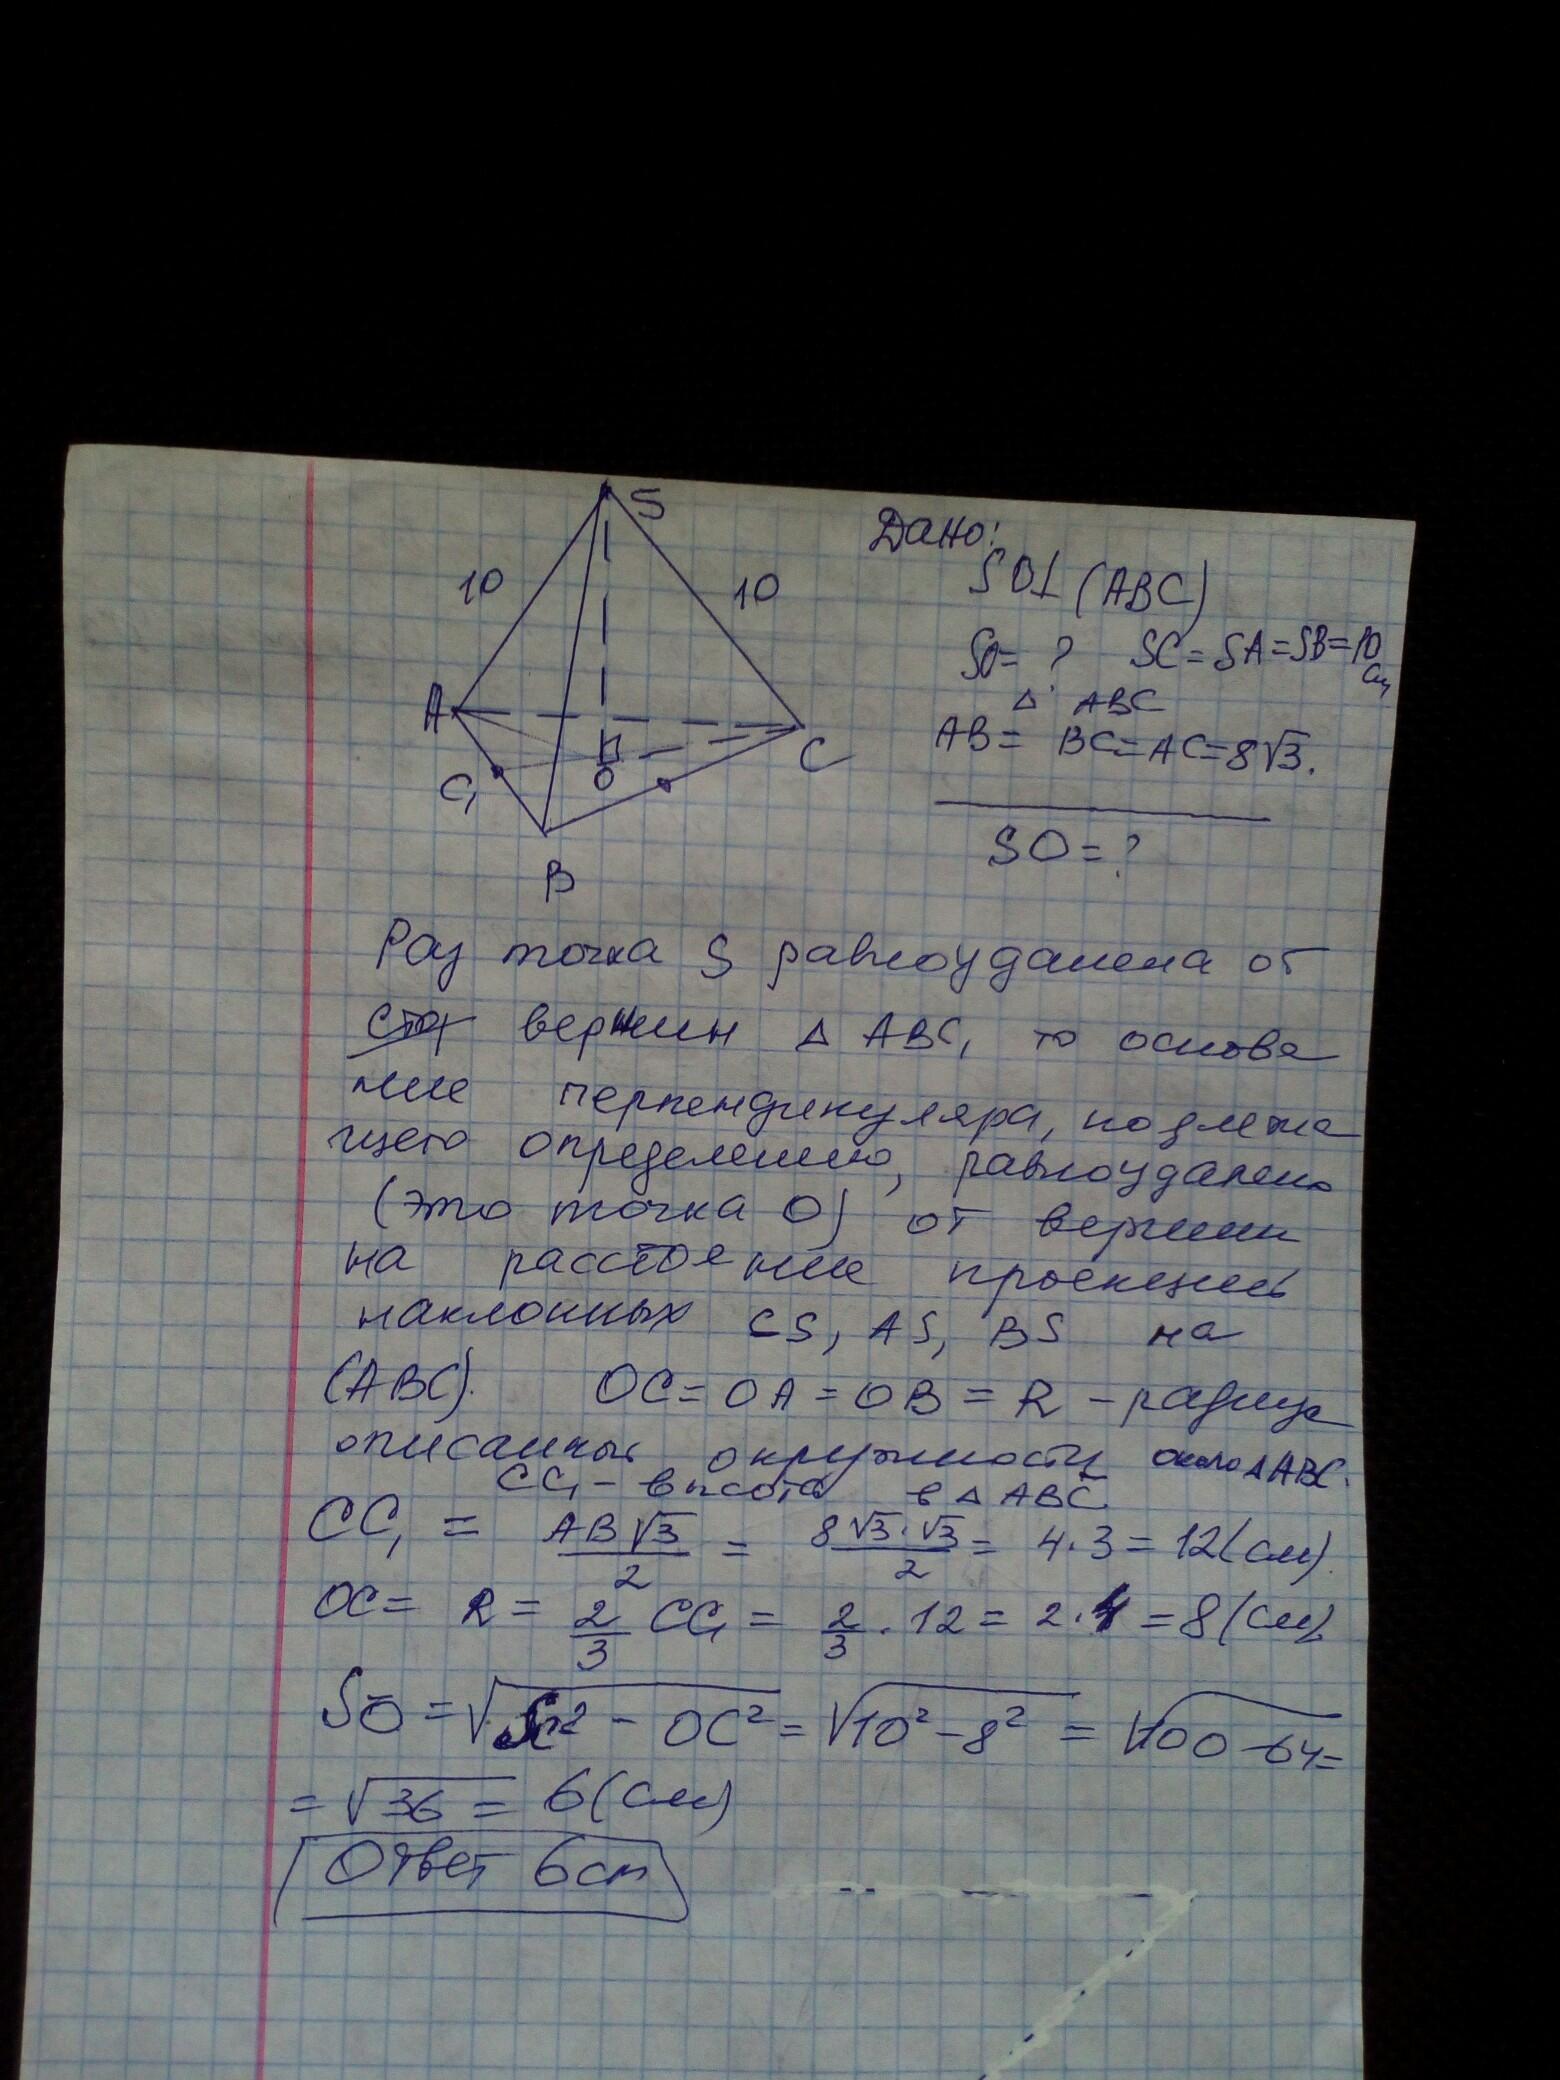 S
10
10
A
C₁
O
C
B
Дано:
SO⊥(ABC)
SO= ? SC=SA=SB=10 см
Δ ABC
AB= BC=AC=8√3.
SO=?
Раз точка S равноудалена от
вершин Δ ABC, то основа
ние перпендикуляра, подлежа
щего определению, равноудалено
(это точка O) от вершин
на расстояние проекций
наклонных CS, AS, BS на
(ABC). OC=OA=OB=R – радиус
описанной окружности около Δ ABC.
CC₁ – высота в Δ ABC
CC₁ = AB√3/2 = 8√3·√3/2 = 4·3=12(см).
OC= R= 2/3 CC₁ = 2/3 · 12 = 2·4 =8(см)
SO =√SC²-OC² = √10²-8² = √100-64=
= √36 = 6(см)
Ответ 6см